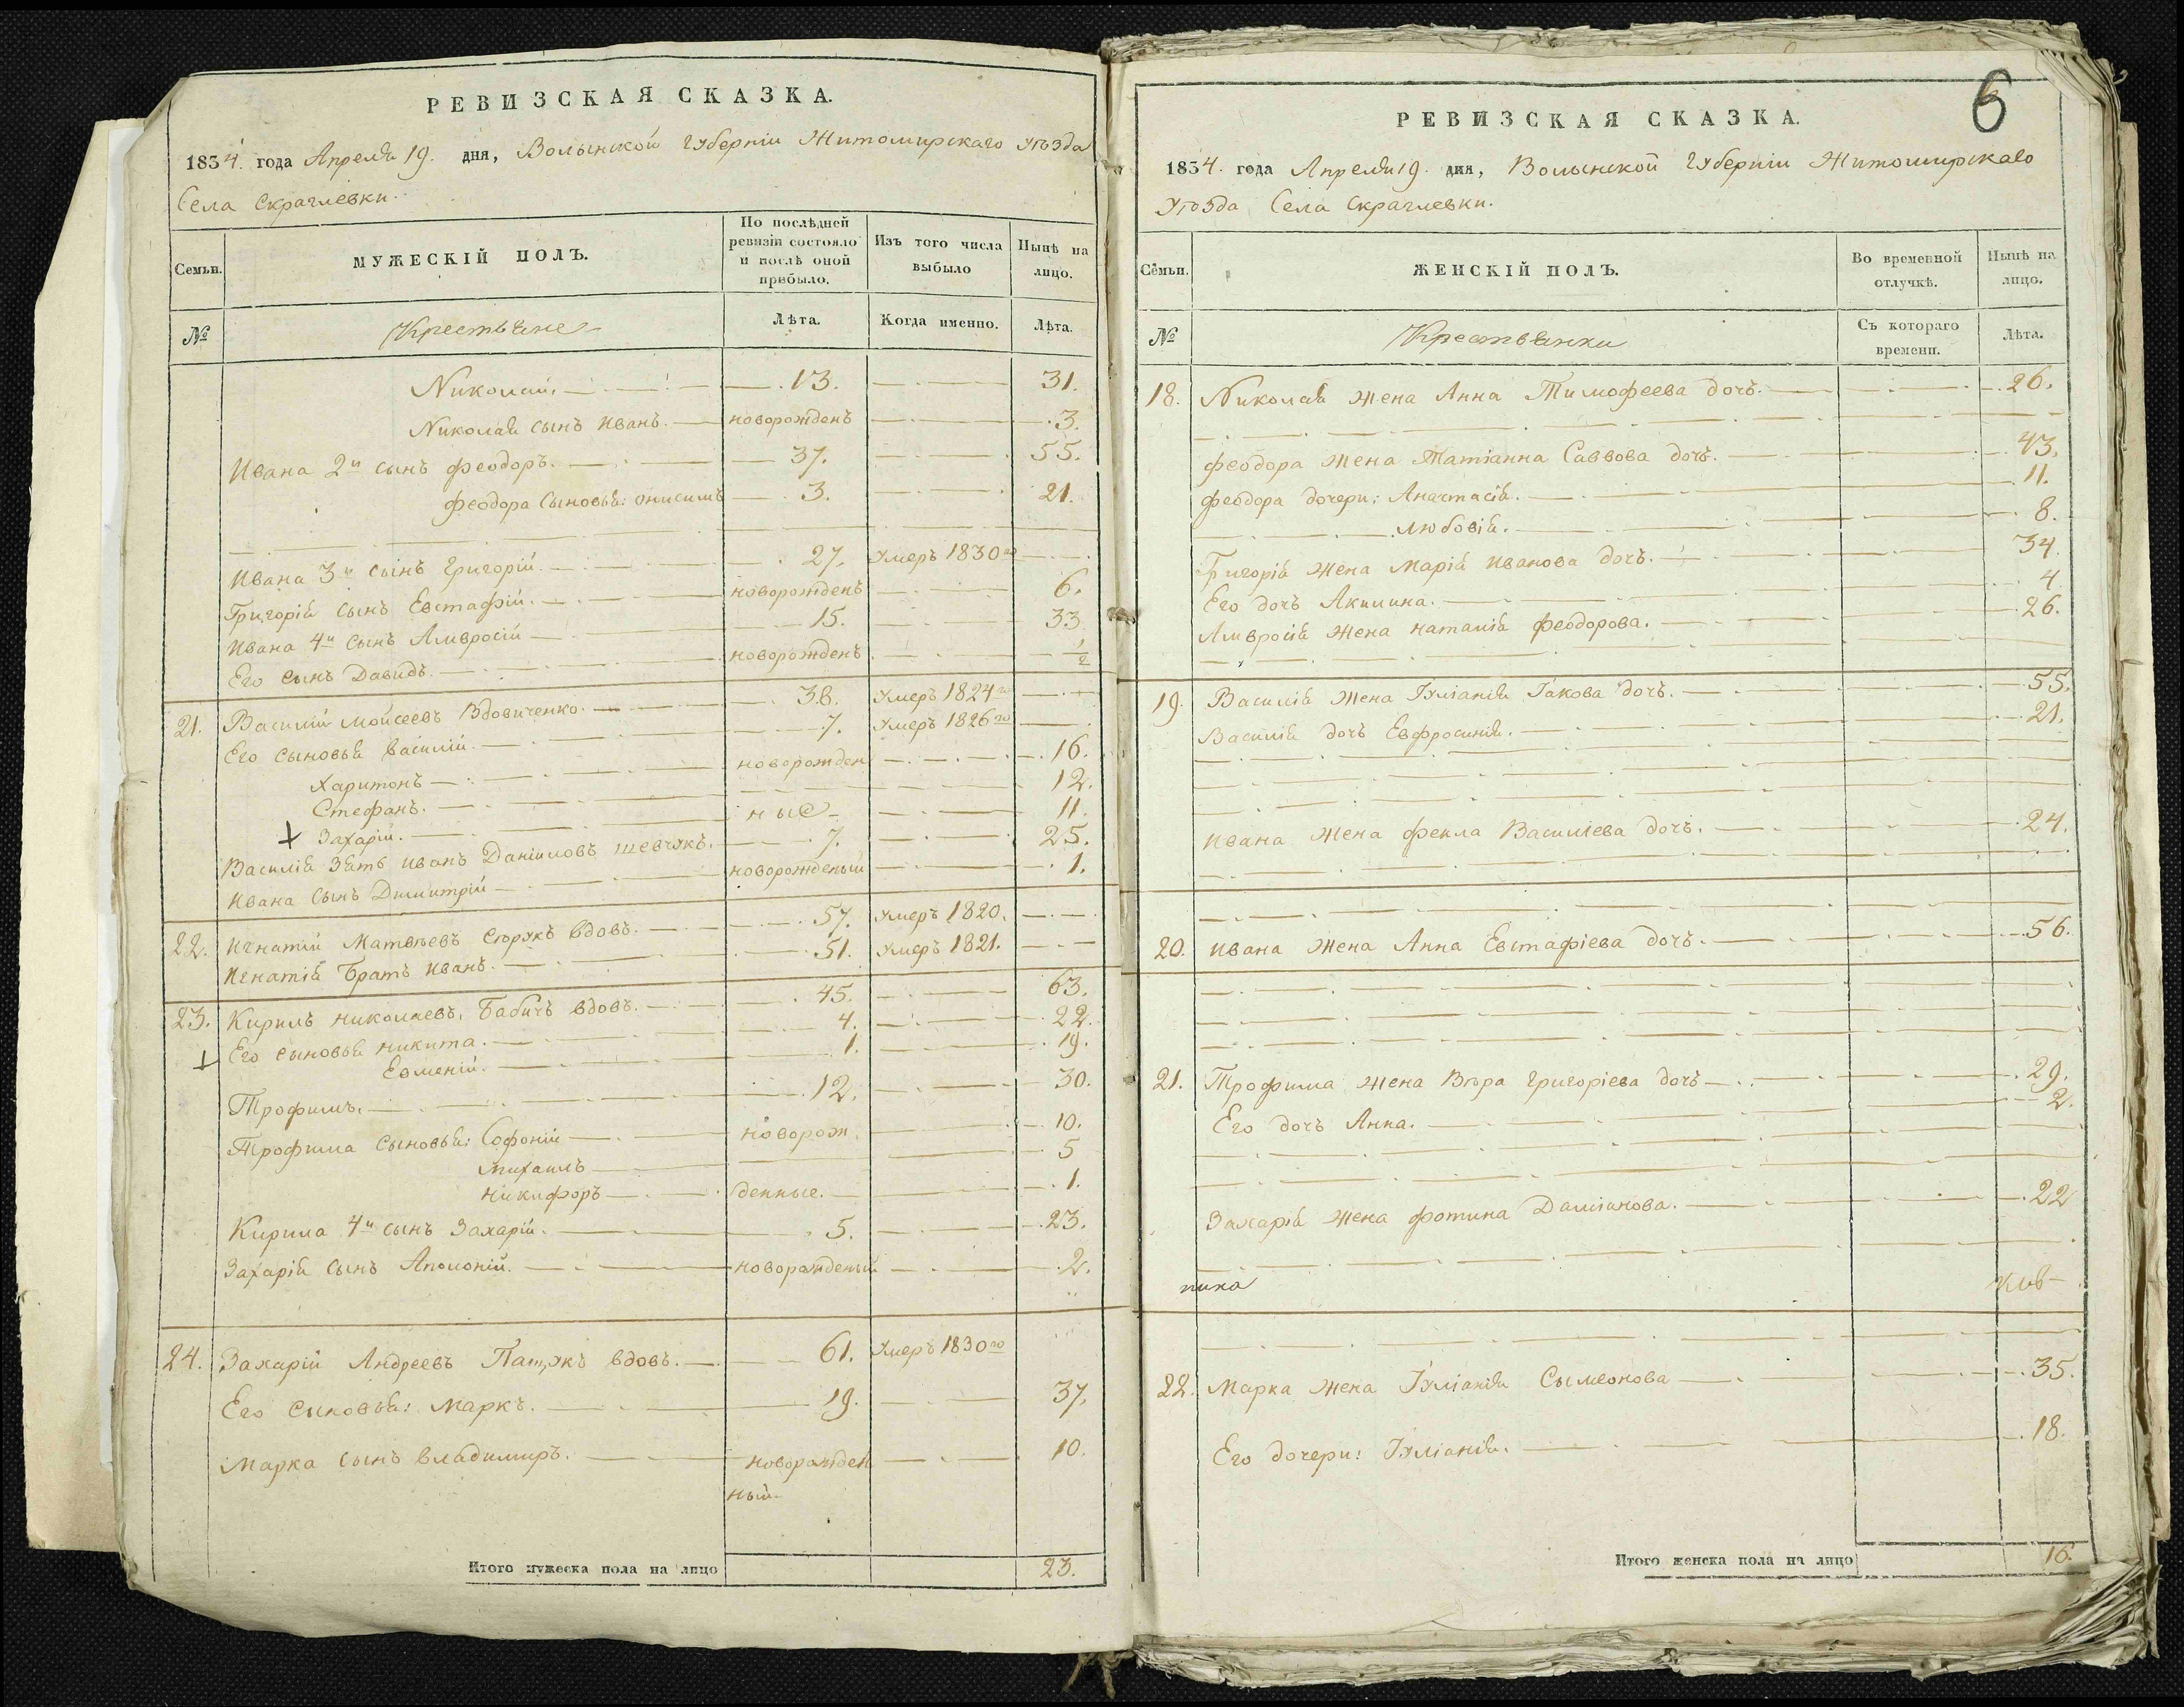 РЕВИЗСКАЯ СКАЗКА.
1834. года Апреля 19. дня, Волынской губерніи Житомирскаго уѣзда
Села Скраглевки.
Семьи.
МУЖЕСКІЙ ПОЛЪ.
По послѣдней ревизіи состояло и послѣ оной прибыло.
Изъ того числа выбыло
Нынѣ на лицо.
№
Крестьяне
Лѣта.
Когда именно.
Лѣта.
Николай 13. 31.
Николая сынъ Иванъ. новорожденъ 3.
Ивана 2й сынъ Феодоръ. 37. 55.
Феодора сыновья: Онисимъ 3. 21.
Ивана 3й сынъ Григорій. 27. Умеръ 1830го
Григорія сынъ Евстафій. новорожденъ 6.
Ивана 4й сынъ Амвросій 15. 33
Его сынъ Давидъ. новорожденъ 1/2
21. Василий Мойсеевъ Вдовиченко. 38. Умеръ 1824го
Его сыновья Василій 7. Умеръ 1826го
Харитонъ новорожден 16.
Стефанъ. 12.
Захарій. ные 11.
Василія Зять Иванъ Даніиловъ Шевчукъ. 7. 25.
Ивана сынъ Димитрій новорожденый 1.
22. Игнатій Матвѣевъ вдовъ. 57. Умеръ 1820.
Игнатія братъ Иванъ. 51. Умеръ 1821.
23. Кирилъ Николаевъ Бабичъ вдовъ. 45. 63.
Его сыновья Никита. 4. 22.
Евменій. 1. 19.
Трофимъ. 12. 30.
Трофима сыновья: Софоній новорож 10.
Михаилъ 5
Никифоръ денные. 1.
Кирила 4й сынъ Захарій. 5. 23.
Захарія сынъ Аполоній. новорожденый 2.
24. Захарій Андреевъ вдовъ. 61. Умеръ 1830го
Его сыновья: Маркъ. 19. 37.
Марка сынъ Владимиръ. новорожден 10.
ный.
Итого мужеска пола на лицо 23.
6
РЕВИЗСКАЯ СКАЗКА.
1834. года Апреля 19. дня, Волынской губерніи Житомирскаго
уѣзда Села Скраглевки.
Семьи.
ЖЕНСКІЙ ПОЛЪ.
Во временной отлучкѣ.
Нынѣ на лицо.
№
Крестьянки
Съ котораго времени.
Лѣта.
18. Николая жена Анна Тимофеева дочь. 26.
Феодора жена Татіанна Саввова дочь. 43.
Феодора дочери: Анастасія. 11.
Любовія. 8.
Григорія жена Марія Иванова дочь. 34.
Его дочь Акилина. 4
Амвросія жена Наталія Феодорова. 26.
19. Василія жена Іуліанія Іакова дочь. 55.
Василія дочь Евфросинія. 21.
Ивана жена Фекла Василіева дочь. 24.
20. Ивана жена Анна Евстафіева дочь. 56.
21. Трофима жена Вѣра Григоріева дочь 29.
Его дочь Анна. 2.
Захарія жена Фотина Даміанова. 22
22. Марка жена Іуліанія Сымеонова 35.
Его дочери: Іуліанія. 18.
Итого женска пола на лицо 16.